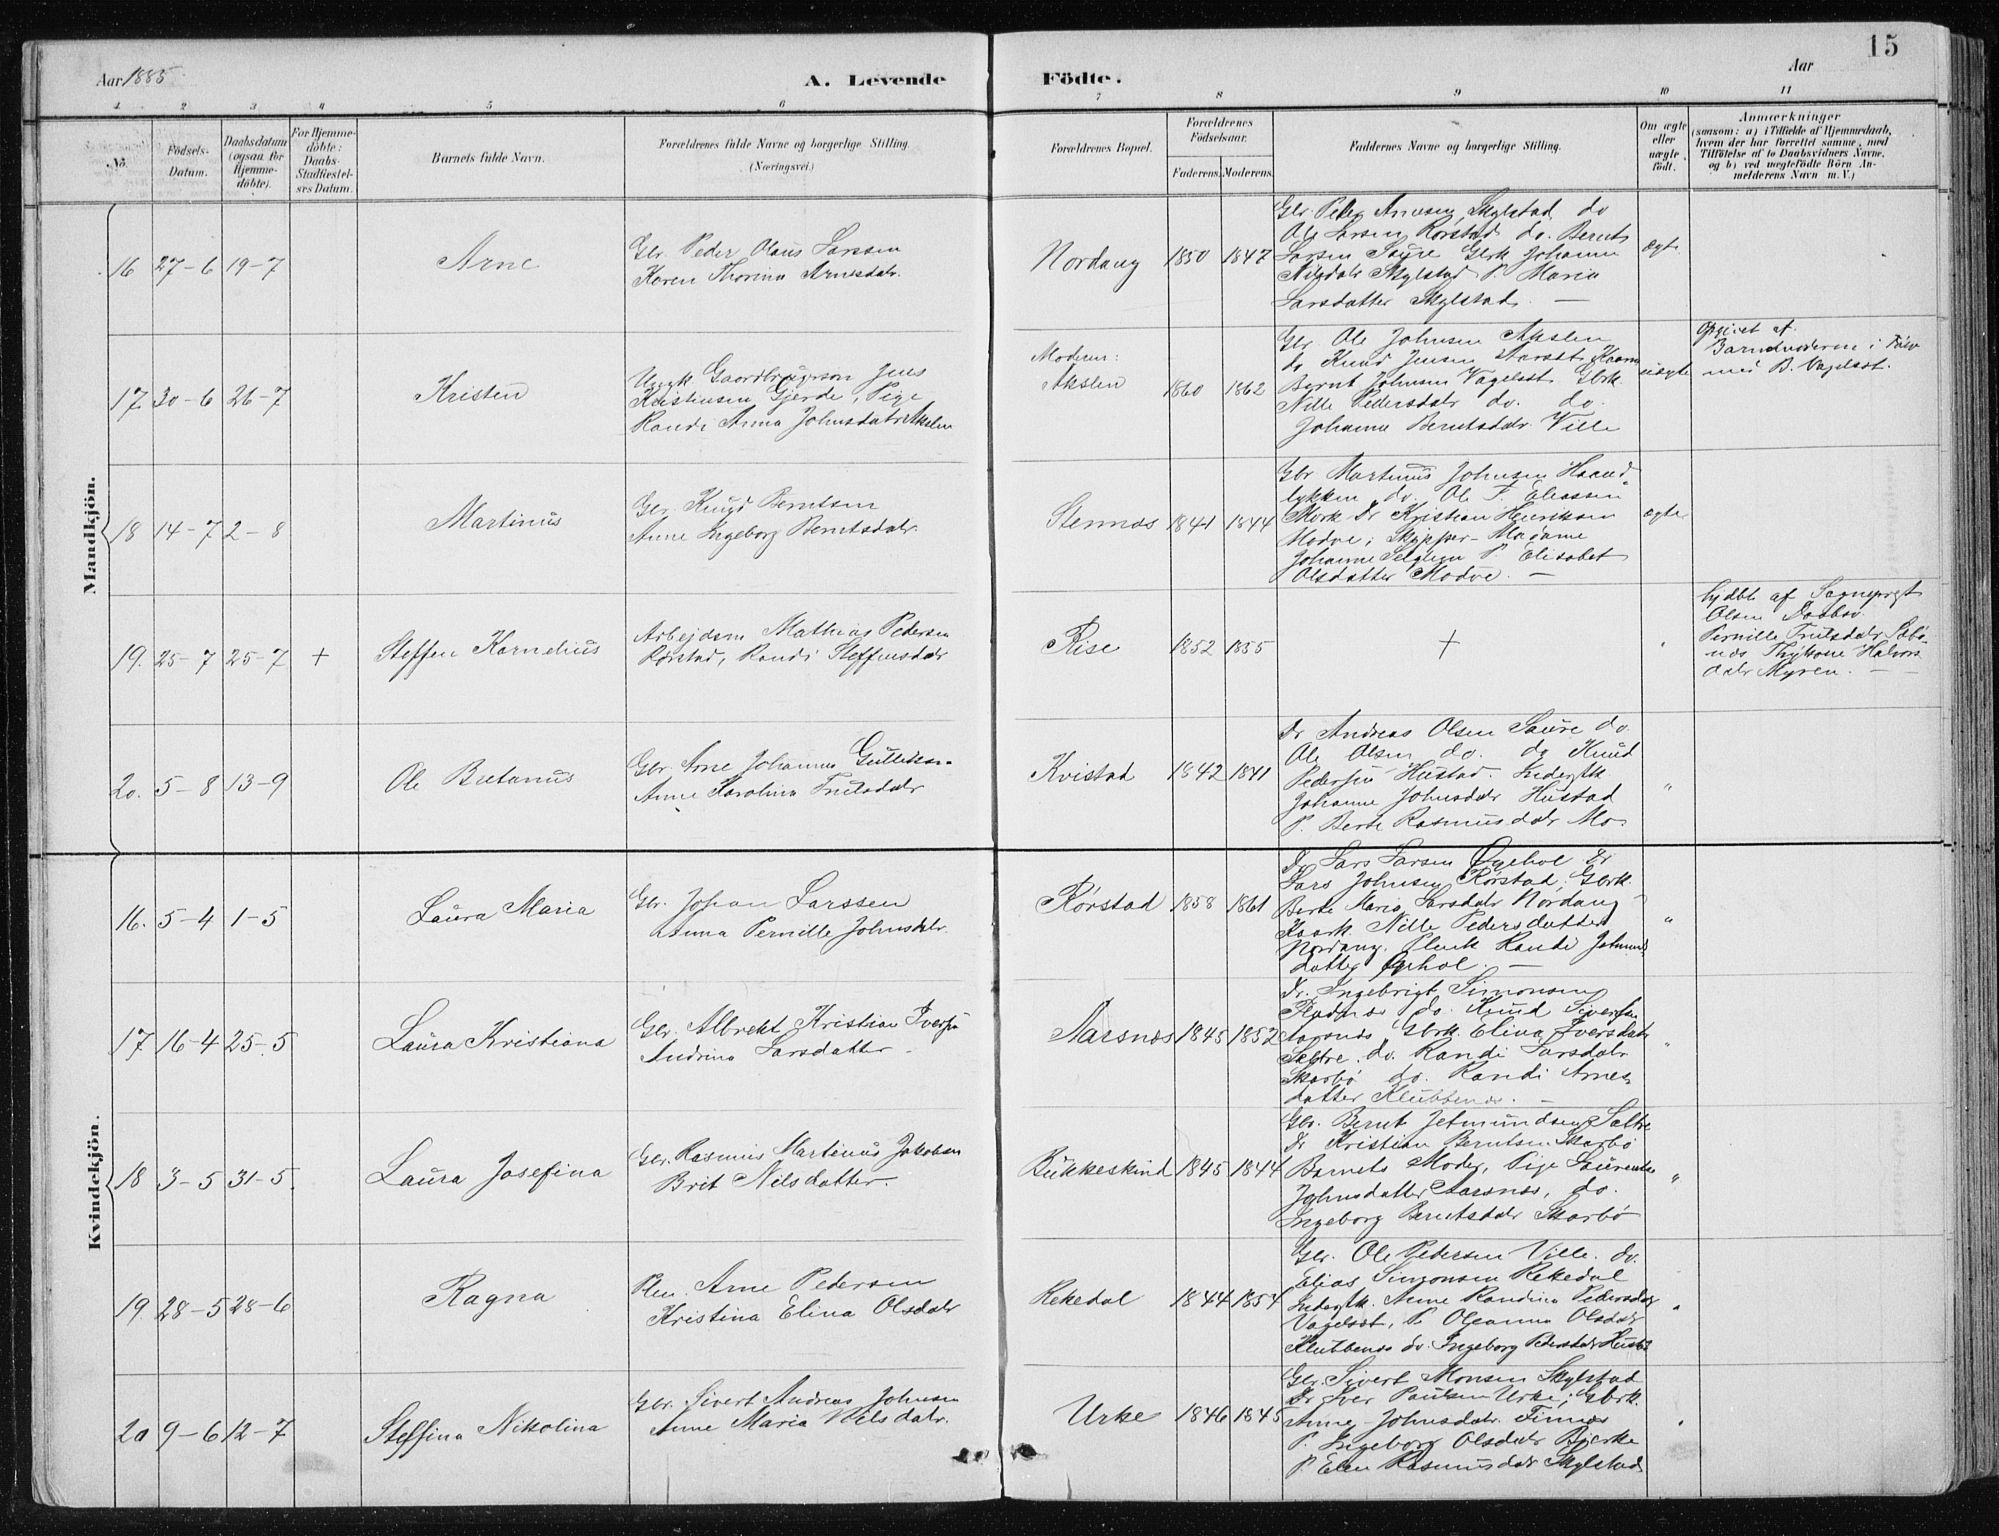 15
Aar 1885
A. Levende Födte.
Aar
1 2 3 4 5 6 7 8 9 10 11
No.
Födsels-Datum.
Daabsdatum (ogsaa for Hjemme-döbte).
For Hjemme-döbte: Daabs-Stadfæstel-ses Datum.
Barnets fulde Navn.
Forældrenes fulde Navne og borgerlige Stilling. (Næringsvei.)
Forældrenes Bopæl.
Forældrenes Födselsaar.
Faderens. Moderens.
Faddernes Navne og borgerlige Stilling.
Om ægte eller uægte födt.
Anmærkninger
(saasom: a) i Tilfælde af Hjemmedaab,
hvem der har forrettet samme, med
Tilföielse af to Daabsvidners Navne,
og b) ved uægtefödte Börn An-
melderens Navn m. V.)
Mandkjön.
16 27-6 19-7 Arne
Gbr. Peder Olaus Larssen
Karen Thorina Arnesdatr.
Nordang 1850 1847
Gbr. Peder Arnesen Skylstad do
Ole Larsen Rørstad do. Bernt
Larsen Saure Gbrk Johanne
Nilsdatr Skylstad P. Maria
Larsdatter Skylstad. —
ægte
17 30-6 26-7 Kristen
Ugyk Gaardbrugerson Jens
Kristensen Gjerde, Pige
Randi Anna Johnsdatr Akslen
Moderen:
Akslen 1860 1862
Gbr. Ole Johnsen Akslen
do Knud Jensen
Bernt Johnsen Vagelsæt Gbrk.
Nille Pedersdatr do. do.
Johanne Berntsdatr. Ville
uægte
Opgivet af
Barnemoderen i Følge
med B. Vagelsæt.
18 14-7 2-8 Martinus
Gbr. Knud Berntsen
Anne Ingeborg Berntsdatr.
Stennæs 1841 1844
Gbr Martinus Johnsen Haand-
lykken do. Ole P. Eliassen
Mork Dr Kristian Henriksen
Modve; Skipper- Madame
Johanne P. Elisabet
Olsdatter Modve. —
ægte
19. 25-7 25-7 + Steffen Kornelius
Arbejdsm Mathias Pedersen
Rørstad, Randi Steffensdatr
Rise 1852 1855
+
"
hjdbt af Sogneprest
Olsen Daabsv.
Pernille Trulsdatr Sæbø-
næs Halvors
datr Myren. —
20. 5-8 13-9 Ole Bretanus
Gbr. Arne Johannes Gulliksen
Anne Karolina Trulsdatr
Kvistad 1842 1841
Dr Andreas Olsen Saure do
Ole Olsen do. do Knud
Pedersen Hustad. Inderstk
Johanne Johnsdatr Hustad
P. Berte Rasmusdatr Mo.
"
Kvindekjön.
16. 5-4 1-5 Laura Maria
Gbr. Johan Larssen
Anna Pernille Johnsdatr.
Rørstad 1858 1861
Dr Lars Larsen Øyehol Dr
Lars Johnsen Rørstad; Gbrk.
Berte Maria Larsdatr Nordang
Kaark. Nille Pedersdatter
Nordang. Plmk Randi Jetmunds
datter Øyehol. —
"
17 16-4 25-5 Laura Kristiana
Gbr. Albrekt Kristian Iversen
Andrina Larsdatter
Aarsnæs 1845 1852
Dr. Ingebrigt Simonsen
Fladmo do. Knud Siversen
Aarsnæs Gbrk. Elina Iversdatr
Sætre. do. Randi Larsdatr
Skarbø do. Randi Arnes
datter Klubbenæs. —
"
18 3-5 31-5. Laura Josefina
Gbr. Rasmus Martinus Jakobsen
Brit Nilsdatter.
Bukkeskind 1845 1844
Gbr. Bernt Jetmundsen Sætre
Dr Kristian Berntsen Skarbø
Barnets Moder, Pige Laurentse
Johnsdatter Aarsnæs, do.
Ingeborg Berntsdatr Skarbø
"
19. 28-5 28-6 Ragna
Plm. Arne Pedersen
Kristina Elina Olsdatr
Rekedal 1844 1854
Gbr. Ole Pedersen Ville. do.
Elias Simonsen Rekedal
Inderstk. Anne Randina Pedersdatr
Vagelsæt, P. Oleanna Olsdatr
Klubbenæs do. Ingeborg Pedersdatr Hustad
"
20 9-6 12-7 Steffina Nikolina
Gbr. Sivert Andreas Johnsen
Anne Maria Nilsdatr.
Urke 1846 1845
Gbr. Sivert Monsen Skylstad
Dr Iver Paulsen Urke; Gbrk.
Anne Johnsdatr. Finnes
P. Ingeborg Olsdatr Bjerke
P. Elen Rasmusdatr Skylstad
"